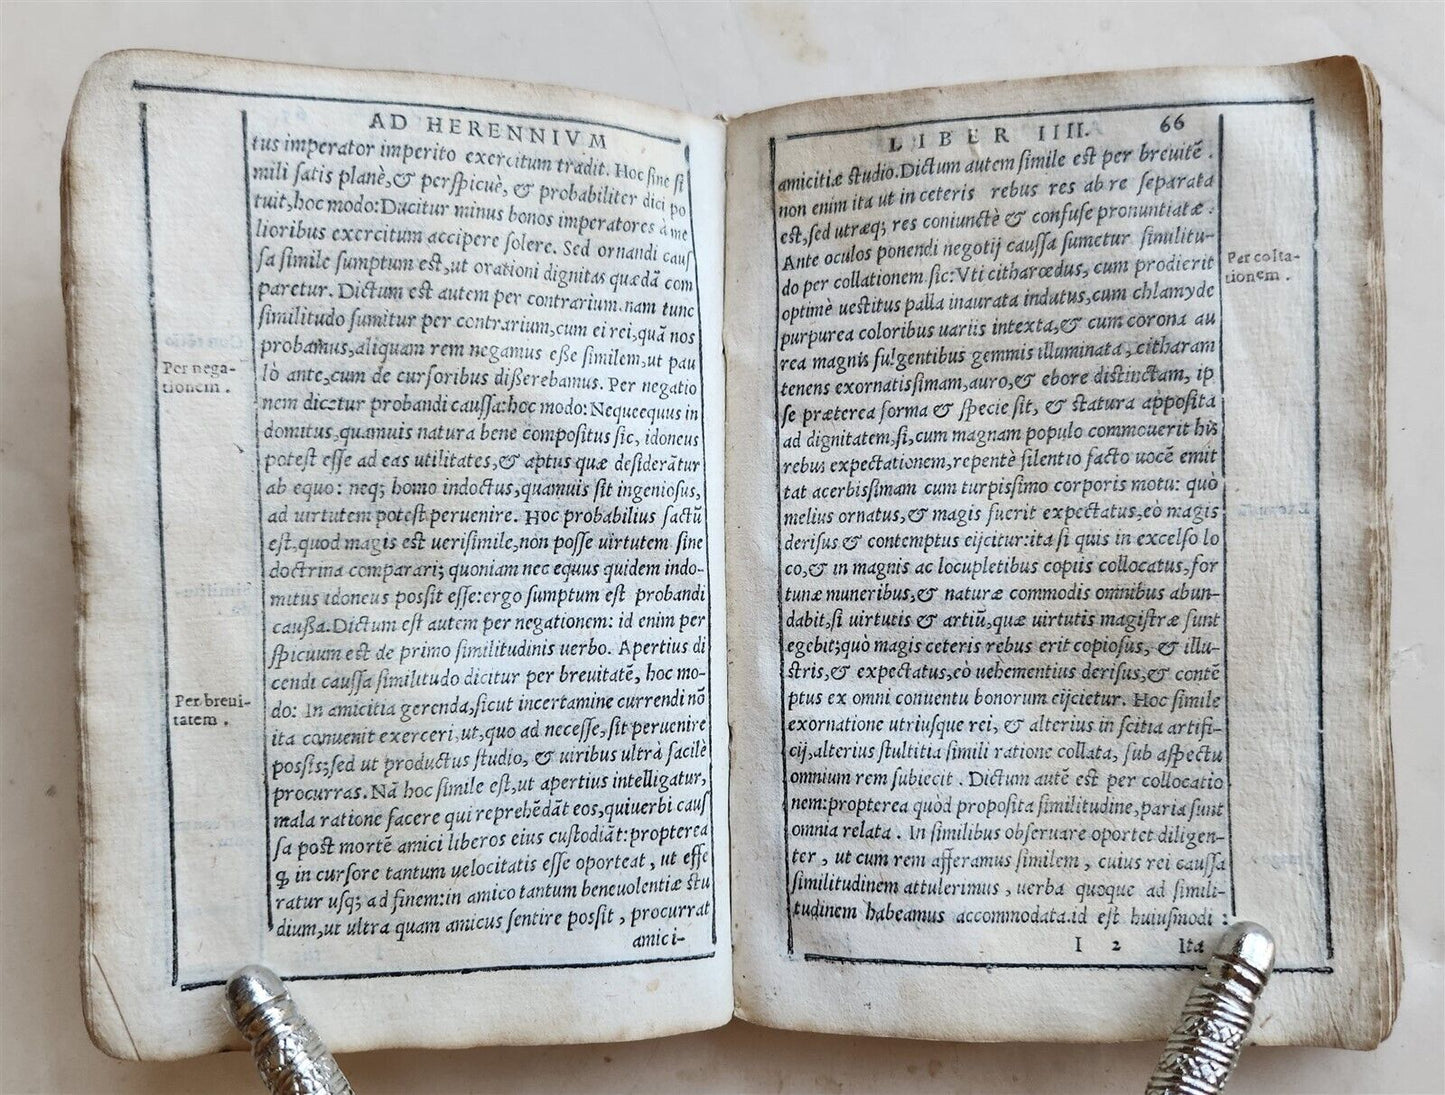 AD HERENNIVM
tus imperator imperito exercitum tradit. Hoc sine si
mili satis planè,& perspicuè, & probabiliter dici po
tuit,hoc modo:Ducitur minus bonos imperatores à me
lioribus exercitum accipere solere. Sed ornandi caus
sa simile sumptum est,ut orationi dignitas quædā com
paretur. Dictum est autem per contrarium.nam tunc
similitudo sumitur per contrarium,cum ei rei,quā nos
probamus,aliquam rem negamus eße similem,ut pau
lò ante,cum de cursoribus dißerebamus. Per negatio
nem dicetur probandi caussa:hoc modo:Neque equus in
domitus,quamuis natura bene compositus sic, idoneus
potest esse ad eas utilitates,& aptus quæ desiderātur
ab equo: neq; homo indoctus,quamuis sit ingeniosus,
ad uirtutem potest peruenire. Hoc probabilius factū
est,quod magis est uerisimile,non posse uirtutem sine
doctrina comparari; quoniam nec equus quidem indo-
mitus idoneus possit esse:ergo sumptum est probandi
caußa.Dictum est autem per negationem: id enim per
spicuum est de primo similitudinis uerbo. Apertius di
cendi caussa similitudo dicitur per breuitatē, hoc mo-
do: In amicitia gerenda,sicut in certamine currendi nō
ita conuenit exerceri,ut,quo ad necesse,sit peruenire
possis;sed ut productus studio, & uiribus ultrà facilè
procurras. Nā hoc simile est,ut apertius intelligatur,
mala ratione facere qui reprehēdāt eos,qui uerbi caus
sa post mortē amici liberos eius custodiāt:propterea
ꝗ in cursore tantum uelocitatis esse oporteat , ut effe
ratur usq; ad finem:in amico tantum beneuolentiæ stu
dium,ut ultra quam amicus sentire possit , procurrat
amici-
Per nega-
tionem .
Per breui-
tatem .
LIBER IIII. 66
amicitiæ studio.Dictum autem simile est per breuitē .
non enim ita ut in ceteris rebus res ab re separata
est,sed utræq; res coniunctè & confuse pronuntiatæ .
Ante oculos ponendi negotij caussa sumetur similitu-
do per collationem sic:Vti citharœdus, cum prodierit
optimè uestitus palla inaurata indutus,cum chlamyde
purpurea coloribus uariis intexta,& cum corona au
rea magnis fulgentibus gemmis illuminata , citharam
tenens exornatissimam,auro,& ebore distinctam, ip
se præterea forma & specie sit, & statura apposita
ad dignitatem,si,cum magnam populo commouerit his
rebus expectationem,repentè silentio facto uocē emit
tat acerbissimam cum turpissimo corporis motu: quò
melius ornatus,& magis fuerit expectatus,eò magis
derisus & contemptus eijcitur:ita si quis in excelso lo
co,& in magnis ac locupletibus copiis collocatus,for
tunæ muneribus,& naturæ commodis omnibus abun-
dabit,si uirtutis & artiū,quæ uirtutis magistræ sunt
egebit;quò magis ceteris rebus erit copiosus, & illu-
stris,& expectatus,eò uehementius derisus,& contē
ptus ex omni conuentu bonorum eijcietur. Hoc simile
exornatione utriusque rei, & alterius in scitia artifi-
cij,alterius stultitia simili ratione collata, sub aspectu
omnium rem subiecit . Dictum autē est per collocatio
nem:propterea quòd proposita similitudine,paria sunt
omnia relata . In similibus obseruare oportet diligen-
ter , ut cum rem afferamus similem , cuius rei caussa
similitudinem attulerimus , uerba quoque ad simili-
tudinem habeamus accommodata.id est huiusmodi :
I 2 Ita
Per colla-
tionem .